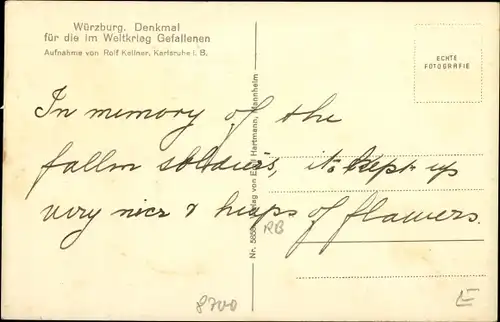 Würzburg. Denkmal
für die im Weltkrieg Gefallenen
Aufnahme von Rolf Kellner, Karlsruhe i. B.
ECHTE
FOTOGRAFIE
In memory of the
fallen soldiers, its kept up
very nice & heaps of flowers.
Nr. Verlag von Hartmann, Mannheim
RB
8700